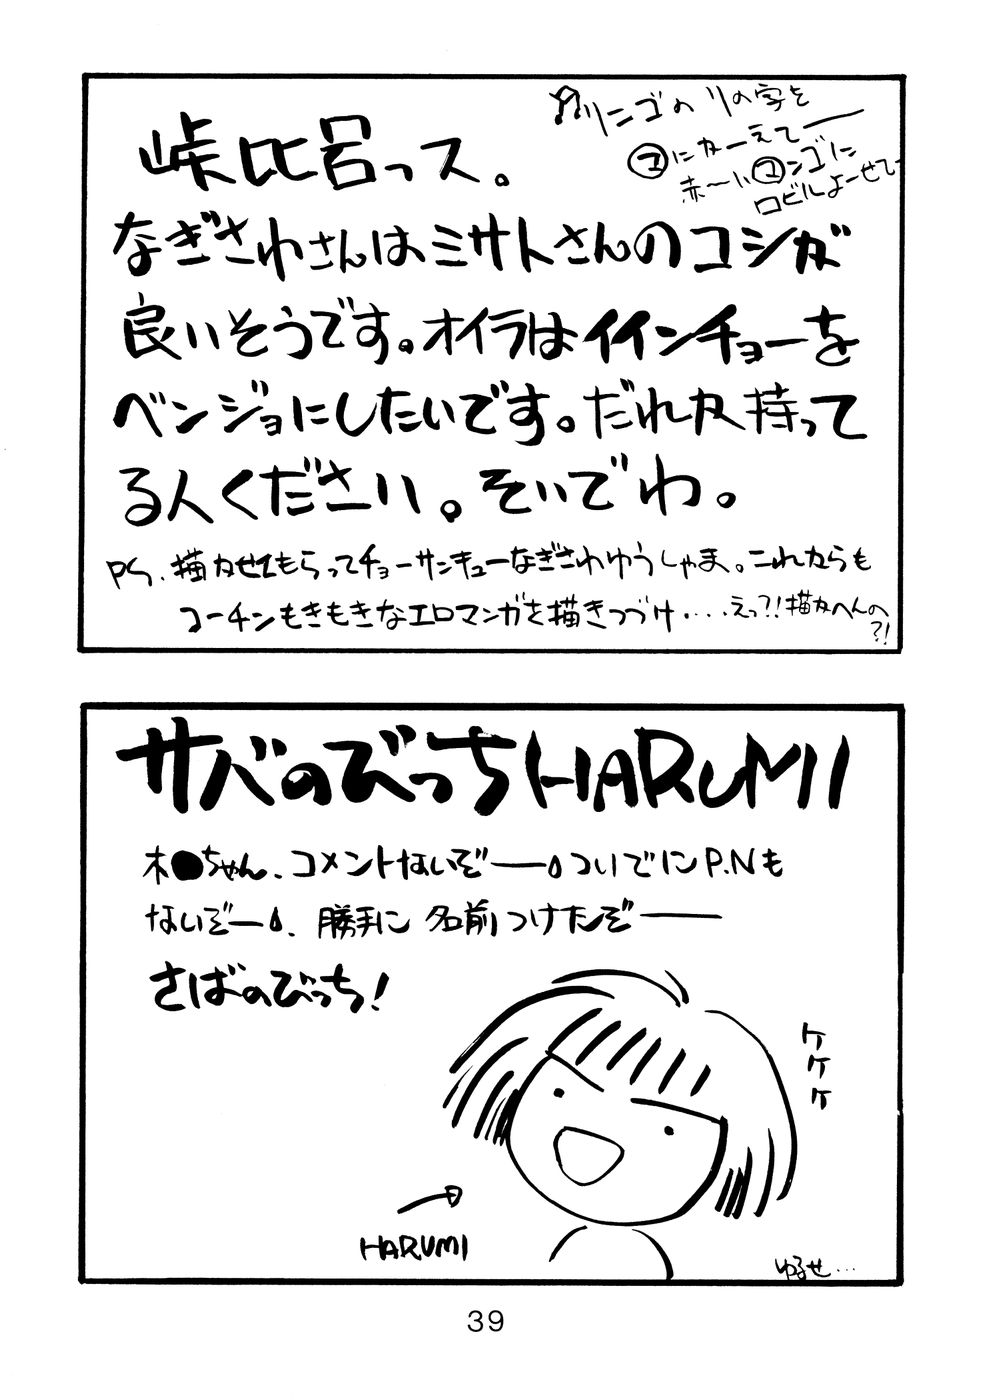 峠比呂っス。
リンゴのリの字を
マにかーえてー
赤〜いマンゴに
口ビルよーせてー
なぎさわさんはミサトさんのコシが
良いそうです。オイラはイインチョーを
ベンジョにしたいです。だれか持って
る人ください。そいでわ。
PS、描かせてもらってチョーサンキューなぎさわゆうしゃま。これからも
コーチンもきもきなエロマンガを描きつづけ‥‥えっ?!描かへんの
?!
サバのびっちHARUMI
木●ちゃん、コメントないぞー。ついでにP.Nも
ないぞー。勝手に名前つけたぞー
さばのびっち!
ケケケ
HARUMI
ゆるせ…
39